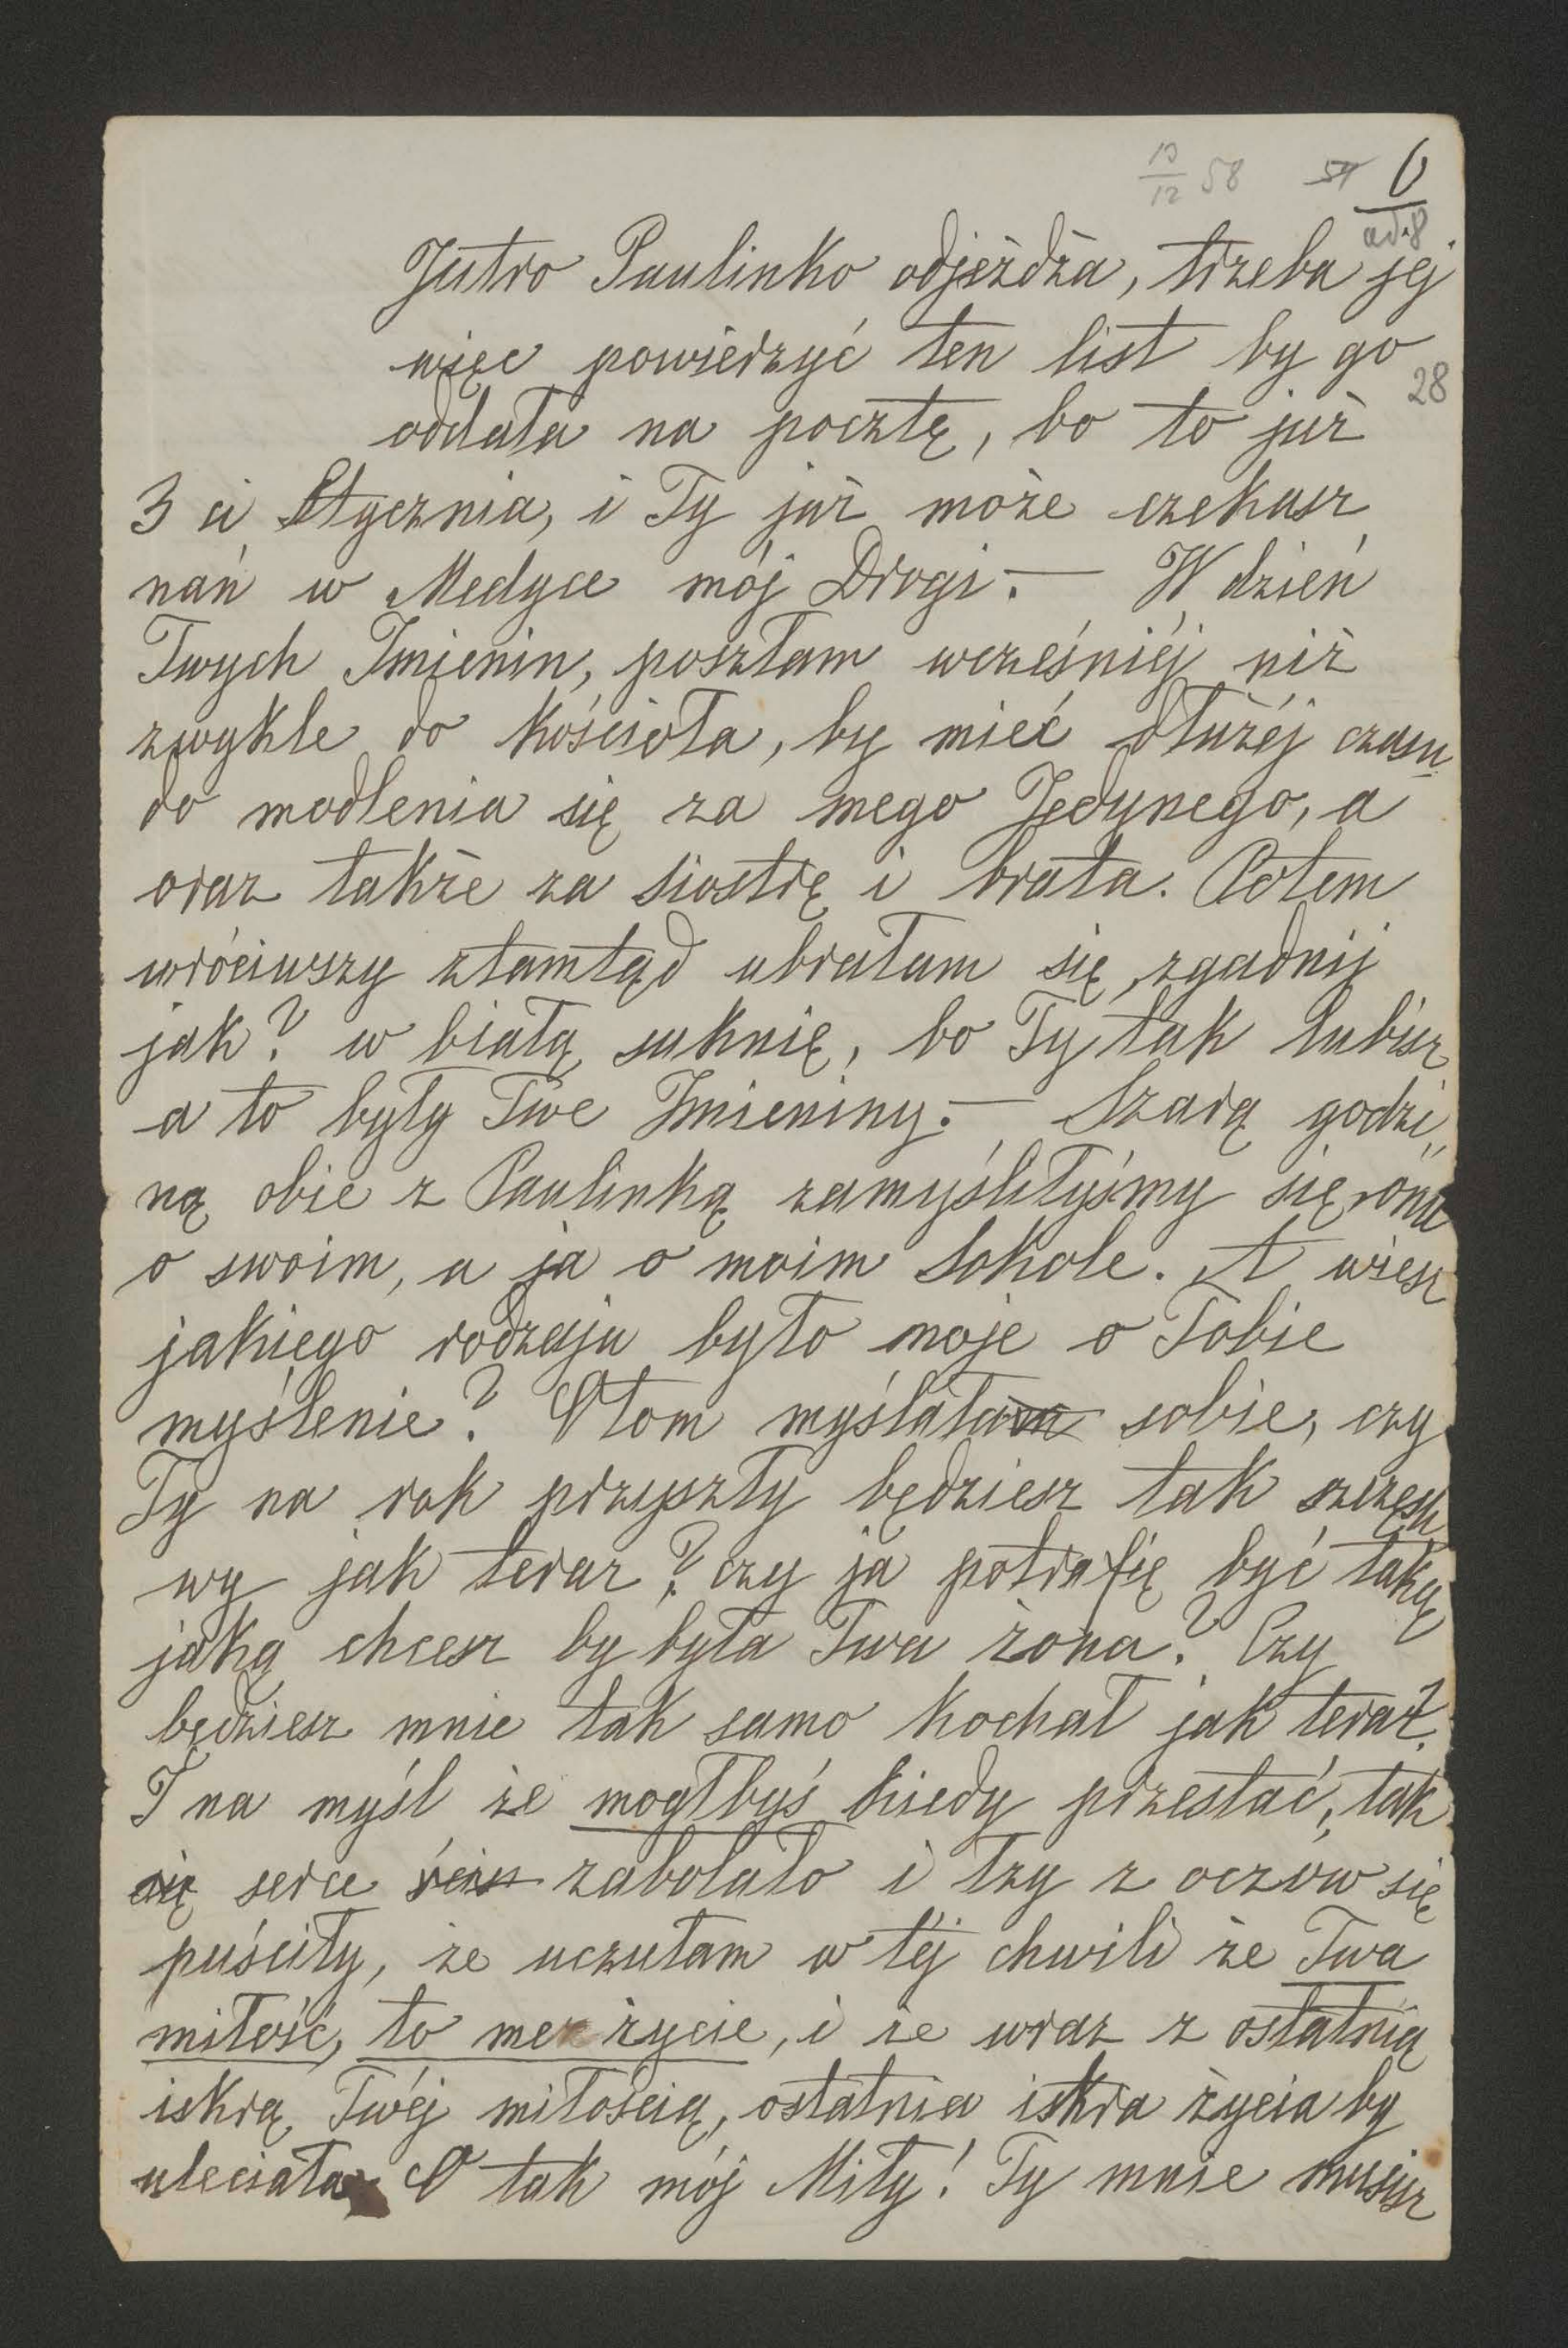 10/12 58 54 6
ad 8
Jutro Paulinka odjeżdża, trzeba jej
więc powierzyć ten list by go
28
oddała na pocztę, bo to już
3 ci Stycznia, i Ty już może czekasz
nań w Medyce mój Drogi. — W dzień
Twych Imienin, poszłam wcześniéj niż
zwykle do kościoła, by mieć dłużéj czasu
do modlenia się za mego Jedynego, a
oraz także za siostrę i brata. Potem
wróciwszy ztamtąd ubrałam się, zgadnij
jak? w białą suknię, bo Ty tak lubisz
a to były Twe Imieniny. — Szarą godzi„
ną obie z Paulinką zamyśliłyśmy się, ona
o swoim, a ja o moim Sokole. A wiesz
jakiego rodzaju było moje o Tobie
myślenie? Otom myślała sobie, czy
Ty na rok przyszły będziesz tak szczęśli
wy jak teraz? czy ja potrafię być taką
jaką chcesz by była Twa żona? Czy
będziesz mnie tak samo kochał jak teraz?
I na myśl że mogłbyś kiedy przestać, tak
się serce zabolało i łzy z oczów się
puściły, że uczułam w téj chwili że Twa
miłość, to me życie, i że wraz z ostatnią
iskrą Twéj miłością, ostatnia iskra życia by
uleciała O tak mój Miły! Ty mnie musisz